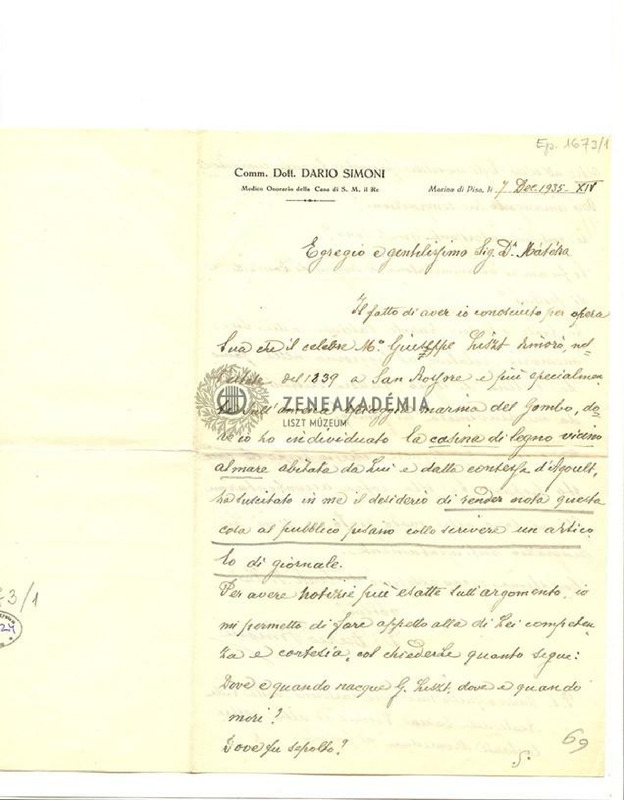 Ep. 1673/1
Comm. Dott. DARIO SIMONI
Medico Onorario della Casa di S. M. il Re
Marina di Pisa, li 7 Dec. 1935 - XIV
Egregio e gentilissimo Sig. Dr. Matéka
Il fatto di aver io conosciuto per opera
Sua che il celebre Mo. Giuseppe Liszt dimorò, nel-
l'estate del 1839 a San Rossore e più specialmen-
te nell'amena spiaggia marina del Gombo, do-
ve io ho individuato la casina di legno vicino
al mare abitata da Lui e dalla contessa d'Agoult,
ha suscitato in me il desiderio di render nota questa
cosa al pubblico pisano collo scrivere un artico
lo di giornale.
Per avere notizie più esatte sull'argomento, io
mi permetto di fare appello alla di Lei competen-
za e cortesia, col chiederle quanto segue:
Dove e quando nacque G. Liszt, dove e quando
morì?
Dove fu sepolto?
ZENEAKADÉMIA
LISZT MÚZEUM
73/1
69